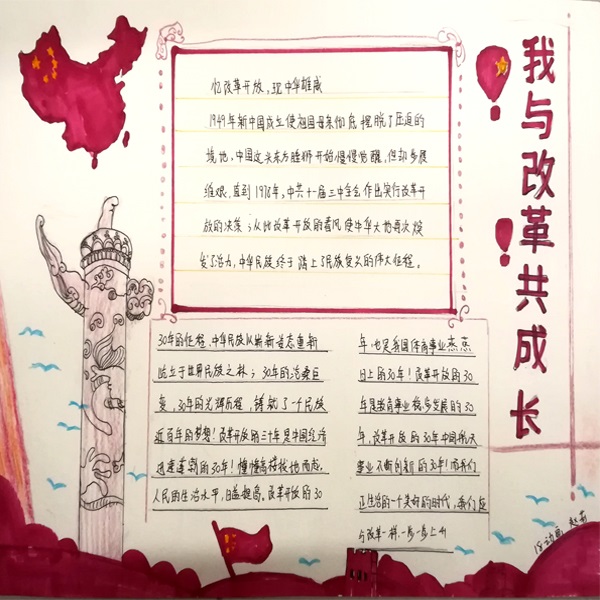 我与改革共成长
忆改革开放,现中华雄威
1949年新中国成立使祖国母亲彻底摆脱了压迫的
境地,中国这头东方睡狮开始慢慢觉醒,但却步履
维艰,直到1978年,中共十一届三中全会作出实行改革开
放的决策;从此改革开放的春风使中华大地再次焕
发了活力,中华民族终于踏上了民族复兴的伟大征程。
30年的征程,中华民族以崭新姿态重新
屹立于世界民族之林;30年的沧桑巨
变,30年的光辉历程,铸就了一个民族
近百年的梦想!改革开放的三十年是中国经济
迅速蓬勃的30年!幢幢高楼拔地而起,
人民的生活水平,日益提高。改革开放的30
年,也是我国体育事业蒸蒸
日上的30年!改革开放的30
年是教育事业稳步发展的30
年,改革开放的30年中国航天
事业不断创新的30年!而我们
正生活的一个美好的时代,我们应
与改革一样,一步一步上升
18动画